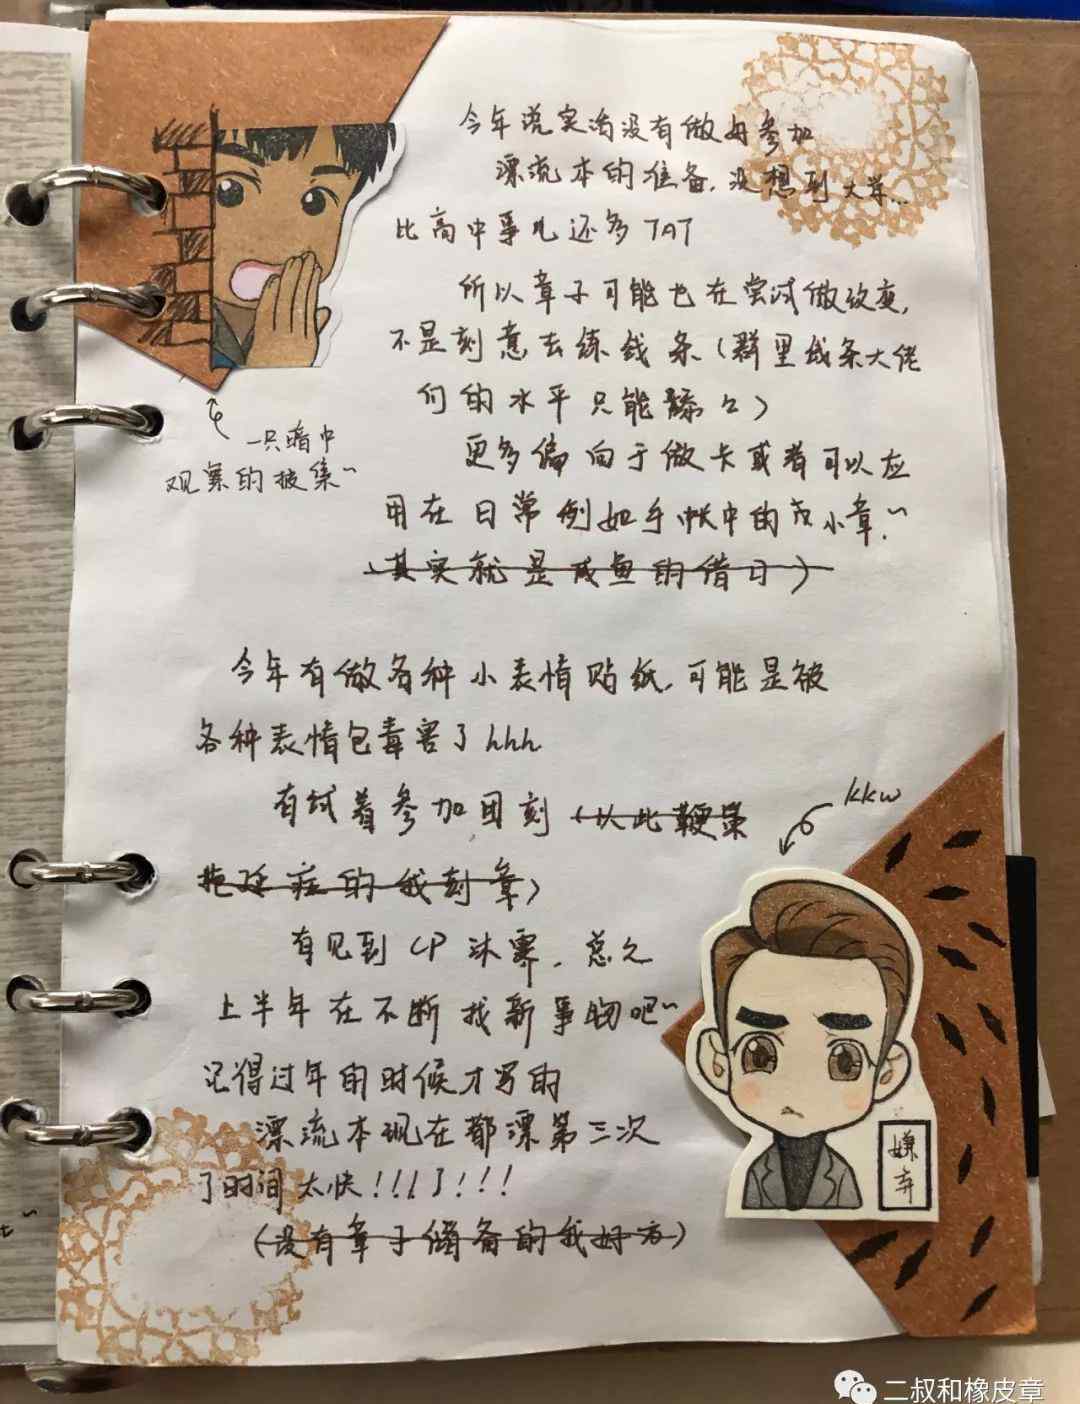 今年说实话没有做好参加
漂流本的准备，没想到大学...
比高中事儿还多TAT
所以章子可能也在尝试做改变，
不是刻意去练线条（群里线条大佬
们的水平只能舔々）
更多偏向于做卡或者可以应
用在日常例如手帐中的小章~
（其实就是咸鱼的借口）
一只暗中
观察的披集~
今年有做各种小表情贴纸，可能是被
各种表情包毒害了hhh
有试着参加团刻（以此鞭策
拖延症的我刻章）
kkw
有见到CP沐霂，总之
上半年在不断找新事物吧~
记得过年的时候才写的
漂流本现在都漂第三次
了时间太快！！！！！！！
（没有章子储备的我好方）
嫌
弃
二叔和橡皮章